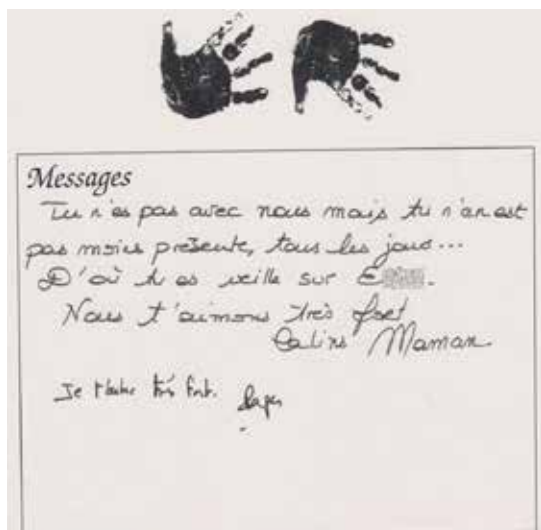 Messages
Tu n'es pas avec nous mais tu n'en est
pas moins présente, tous les jours...
D'où tu es veille sur E
Nous t'aimons très fort
Calins Maman
Je t'aime très fort.